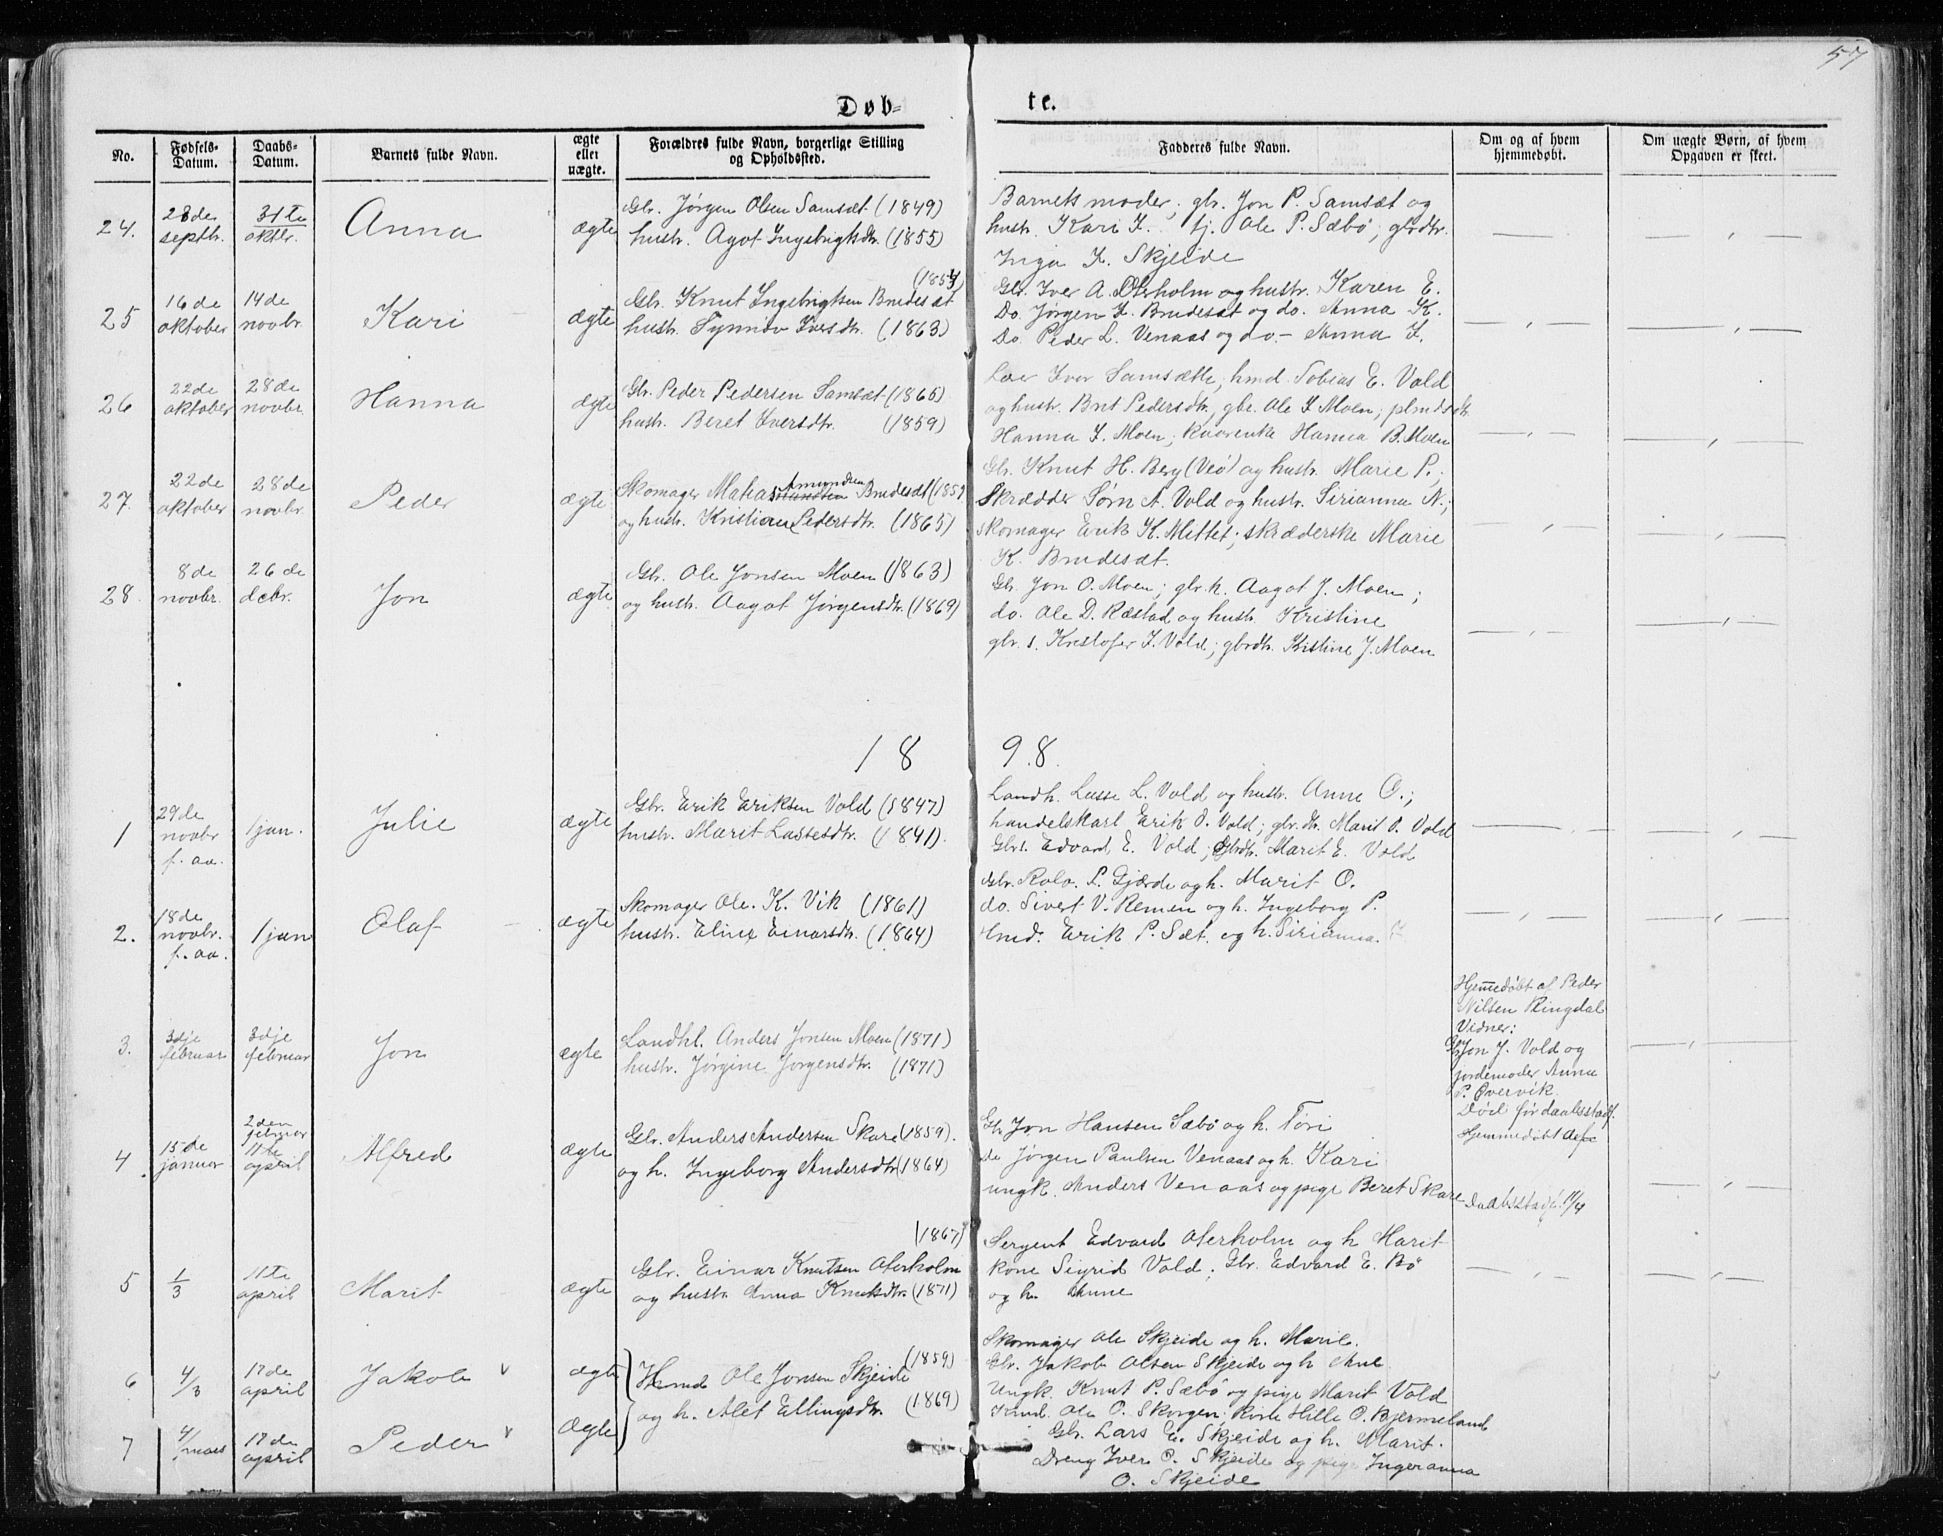 57
Døb- te.
No. Fødsels-Datum. Daabs-Datum. Barnets fulde Navn. ægte eller uægte. Forældres fulde Navn, borgerlige Stilling og Opholdssted. Fadderes fulde Navn. Om og af hvem hjemmedøbt. Om uægte Børn, af hvem Opgaven er skeet.
24. 28de septbr. 31te oktbr. Anna ægte
Gbr. Jørgen Olsen Samsæt (1849)
hustr. Agot Ingebrigtsdtr. (1855)
Barnets moder; gbr. Jon P. Samsæt og
hustr. Kari I. tj. Ole P. Sæbø; gbrdtr.
Inga K. Skjeide
25 16de oktober 14de novbr. Kari ægte
(1857)
Gbr. Knut Ingebrigtsen Brudesæt
hustr. Synnøv Iversdtr. (1863)
Gbr. Iver A. Oterholm og hustr. Karen E.
Do. Jørgen I. Brudesæt og do. Anna K.
Do. Peder L. Venaas og do.- Anna I.
26 22de oktober 28de novbr. Hanna ægte
Gbr. Peder Pedersen Samsæt (1865)
hustr. Beret Iversdtr. (1859)
Lær. Iver Samsæth; hmd. Tobias E. Vold
og hustr. Brit Pedersdtr, gbr. Ole I Moen; plmdsdtr.
Hanna I. Moen; Hanna B. Moen
27. 22de oktober 28de novbr. Peder ægte
Amundsen
Skomager Matias Brudesæt (1859
og hustr. Kristiane Pedersdtr. (1865)
Gbr. Knut H. Berg (Veø) og hustr. Marie P.;
Skrædder Sørn A. Vold og hustr. Sirianna N.;
skomager Erik K. Mittet; skrædderske Marie
K. Brudesæt.
28. 8de novbr. 26de debr. Jon ægte
Gbr. Ole Jonsen Moen (1863)
og hustr. Aagot Jørgensdtr. (1869)
Gbr. Jon O. Moen; gbr.k. Aagot J. Moen;
do. Ole D. Ræstad og hustr. Kristine
gbr. s. Kristofer I. Vold; gbrdtr. Kristine J. Moen
18 98.
1 29de novbr f. aa. 1 jan. Julie ægte
Gbr. Erik Eriksen Vold (1847)
hustr. Marit Lassesdtr. (1841).
Landh. Lasse L. Vold og hustr. Anne O.;
handelskarl Erik O. Vold; gbr.dtr. Marit O. Vold
Gbrs. Edvard E. Vold; Gbrdtr. Marit E. Vold
2. 18de novbr. f. aa. 1 jan Olaf ægte
Skomager Ole. K. Vik (1861)
hustr. Eline Einarsdtr. (1864)
Gbr. Rolv. P. Gjærde og h. Marit O.
do. Sivert V. Remen og h. Ingeborg P.
Hmd. Erik P. Sæt. og h. Sirianna.
3. 3dje februar 3dje februar Jon ægte
Landhl. Anders Jonsen Moen (1871)
hustr. Jørgine Jørgensdtr. (1871)
Hjemmedøbt af Peder
Nilsen Ringdal
Vidner:
Gbr Jon J. Vold og
jordemoder Anna
P. Øvervik.
Død før daabsstadf.
4. 15de januar 2den februar 11te april Alfred ægte
Gbr. Anders Andersen Skare (1859).
og h. Ingeborg Andersdtr (1864)
Gbr Jon Hansen Sæbø og h. Tøri
do Jørgen Paulsen Venaas og h. Kari
ungk. Anders Venaas og pige Beret Skare
Hjemmedøbt
Daabsstadf. 11/4
5 1/3 11te april Marit ægte
(1867)
Gbr. Einar Knutsen Oterholm
og hustr Anna Knutsdtr. (1871)
Sergent Edvard Oterholm og h Marit
kone Sigrid Vold; Gbr. Edvard E. Bø
og h. Anne
6 4/3 17de april Jakob ægte
(1859)
Hmd Ole Jonsen Skjeide
og h. Alet Ellingsdtr. (1869)
Skomager Ole Skjeide og h. Marit.
Gbr. Jakob Olsen Skjeide og h Ane
Ungk. Knut P. Sæbø og pige Marit Vold
7 4/mars 17de april Peder ægte
Hmd. Ole O. Skorgen; Hille O. Bjermeland
Gbr. Lars E. Skjeide og h. Marit.
Dreng Iver O. Skjeide og pige Ingeranna
O. Skjeide